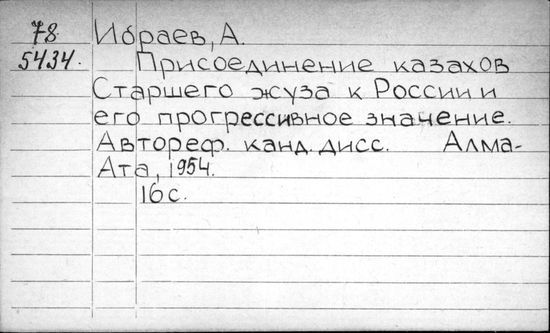 78 Ибраев, А.
5434. Присоединение казахов
Старшего жуза к России и
его прогрессивное значение.
Автореф. канд. дисс. Алма-
Ата, 1954.
16 с.